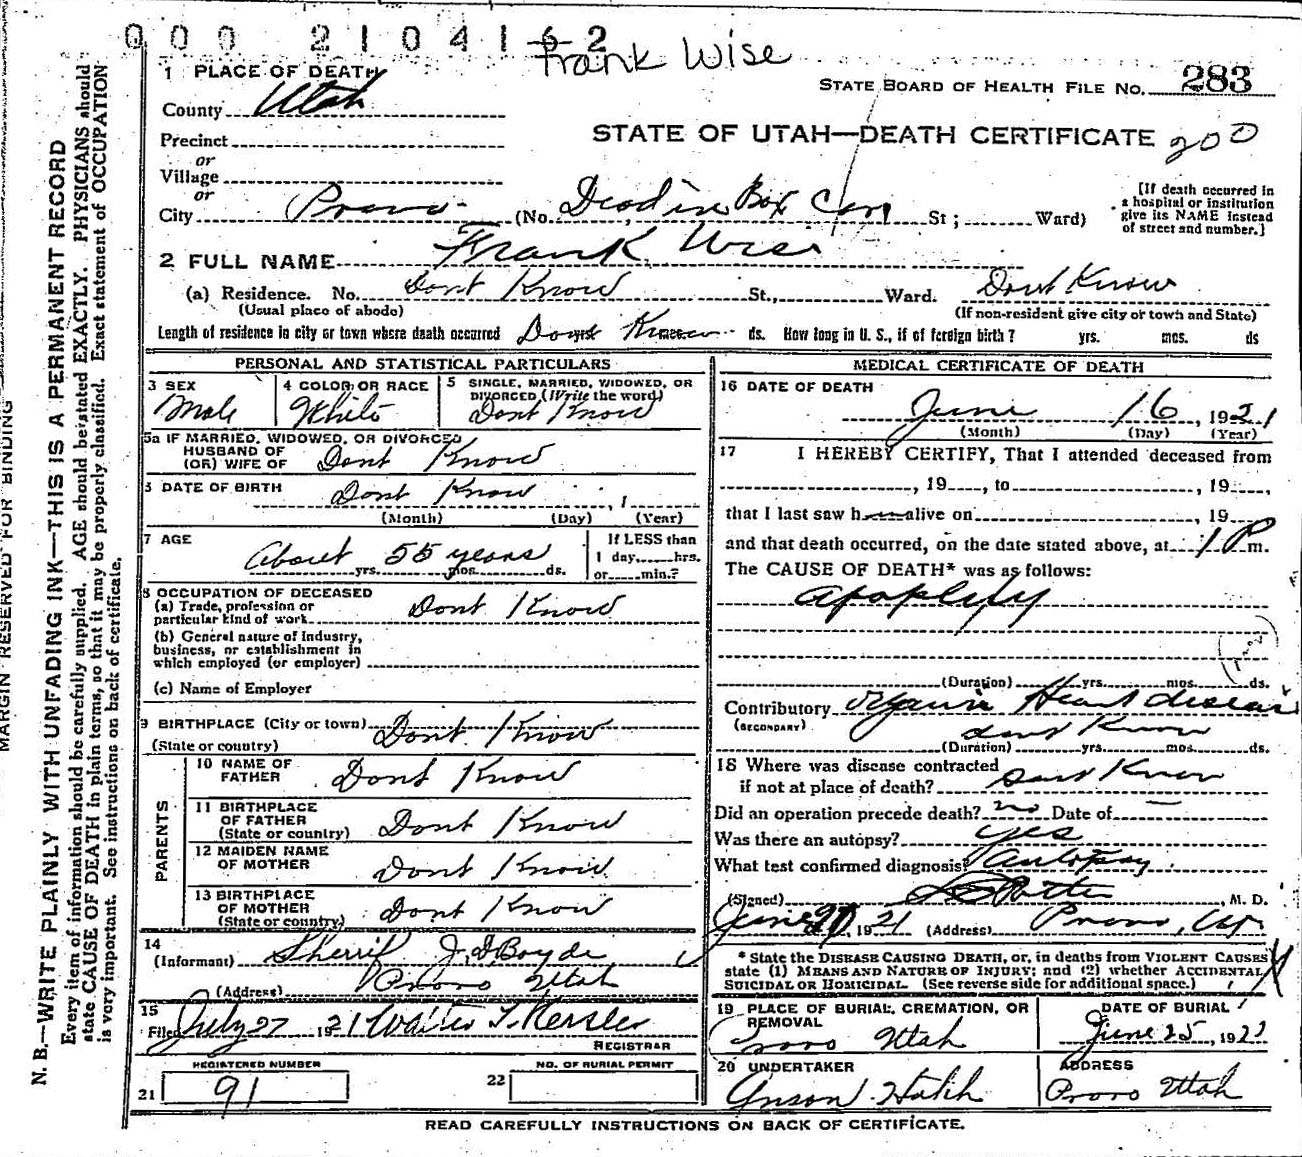 000 2104162
Frank Wise
1 PLACE OF DEATH
County Utah
STATE BOARD OF HEALTH FILE No. 283
Precinct
STATE OF UTAH—DEATH CERTIFICATE 200
or
Village
or
City Provo (No. Dead in Box Car St; Ward)
[If death occurred in
a hospital or institution
give its NAME instead
of street and number.]
2 FULL NAME Frank Wise
(a) Residence. No. Dont Know St., Ward. Dont Know
(Usual place of abode) (If non-resident give city or town and State)
Length of residence in city or town where death occurred Dont yrs. Know mos. ds. How long in U. S., if of foreign birth? yrs. mos. ds
PERSONAL AND STATISTICAL PARTICULARS
3 SEX 4 COLOR OR RACE 5 SINGLE, MARRIED, WIDOWED, OR
DIVORCED (Write the word)
Male White Dont Know
5a IF MARRIED, WIDOWED, OR DIVORCED
HUSBAND OF
(OR) WIFE OF Dont Know
DATE OF BIRTH Dont Know , 1
(Month) (Day) (Year)
7 AGE About 55 years
yrs. mos. ds.
If LESS than
1 day, hrs.
or min.?
8 OCCUPATION OF DECEASED
(a) Trade, profession or
particular kind of work Dont Know
(b) General nature of industry,
business, or establishment in
which employed (or employer)
(c) Name of Employer
9 BIRTHPLACE (City or town) Dont Know
(State or country)
PARENTS
10 NAME OF
FATHER Dont Know
11 BIRTHPLACE
OF FATHER
(State or country) Dont Know
12 MAIDEN NAME
OF MOTHER Dont Know
13 BIRTHPLACE
OF MOTHER
(State or country) Dont Know
14
(Informant) Sherrif J. D. Boyde
(Address) Provo Utah
15
Filed July 27 1921 Walter T. Kersler
REGISTRAR
REGISTERED NUMBER NO. OF BURIAL PERMIT
21 91 22
MEDICAL CERTIFICATE OF DEATH
16 DATE OF DEATH
June 16, 1921
(Month) (Day) (Year)
17 I HEREBY CERTIFY, That I attended deceased from
, 19 , to , 19 ,
that I last saw h alive on , 19
and that death occurred, on the date stated above, at 1 P m.
The CAUSE OF DEATH* was as follows:
Apoplexy
(Duration) yrs. mos. ds.
Contributory Organic Heart disease
(SECONDARY) dont Know
(Duration) yrs. mos. ds.
18 Where was disease contracted
if not at place of death? Dont Know
Did an operation precede death? no Date of —
Was there an autopsy? yes
What test confirmed diagnosis? Autopsy
(Signed) , M. D.
June 1921 (Address) Provo, Ut.
* State the DISEASE CAUSING DEATH, or, in deaths from VIOLENT CAUSES
state (1) MEANS AND NATURE OF INJURY; and (2) whether ACCIDENTAL
SUICIDAL OR HOMICIDAL. (See reverse side for additional space.)
19 PLACE OF BURIAL, CREMATION, OR
REMOVAL
Provo Utah
DATE OF BURIAL
June 25, 1921
20 UNDERTAKER
Anson Hatch
ADDRESS
Provo Utah
READ CAREFULLY INSTRUCTIONS ON BACK OF CERTIFICATE.
MARGIN RESERVED FOR BINDING
N. B.—WRITE PLAINLY WITH UNFADING INK—THIS IS A PERMANENT RECORD
Every item of information should be carefully supplied. AGE should be stated EXACTLY. PHYSICIANS should
state CAUSE OF DEATH in plain terms, so that it may be properly classified. Exact statement of OCCUPATION
is very important. See instructions on back of certificate.